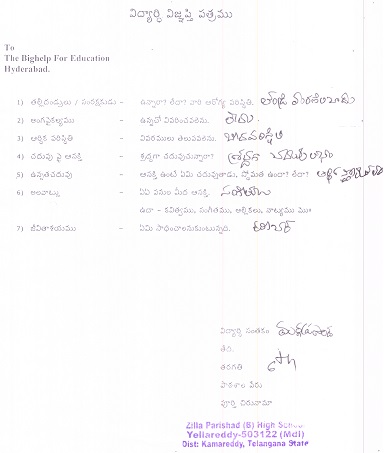 విద్యార్థి విజ్ఞప్తి పత్రము
To
The Bighelp For Education
Hyderabad.
1) తల్లిదండ్రులు / సంరక్షకుడు - ఉన్నారా? లేదా? వారి ఆరోగ్య పరిస్థితి. తండ్రి మరణించాడు
2) అంగవైకల్యము - ఉన్నచో వివరించవలెను. లేదు
3) ఆర్థిక పరిస్థితి - వివరములు తెలుపవలెను.
4) చదువు పై ఆసక్తి - శ్రద్ధగా చదువుచున్నారా? శ్రద్ధగా
5) ఉన్నతచదువు - ఆసక్తి ఉంటే ఏమి చదువుతాడు, స్తోమత ఉందా? లేదా? ఆర్థిక
6) అలవాట్లు - ఏఏ పనుల మీద ఆసక్తి.
ఉదా - కవిత్వము, సంగీతము, ఆటలు, నాట్యము మొ
7) జీవితాశయము - ఏమి సాధించాలనుకుంటున్నది. టీచర్
విద్యార్థి సంతకం
తేది.
తరగతి 6th
పాఠశాల పేరు
పూర్తి చిరునామా
Zilla Parishad (B) High School
Yellareddy-503122 (Mdl)
Dist: Kamareddy, Telangana State